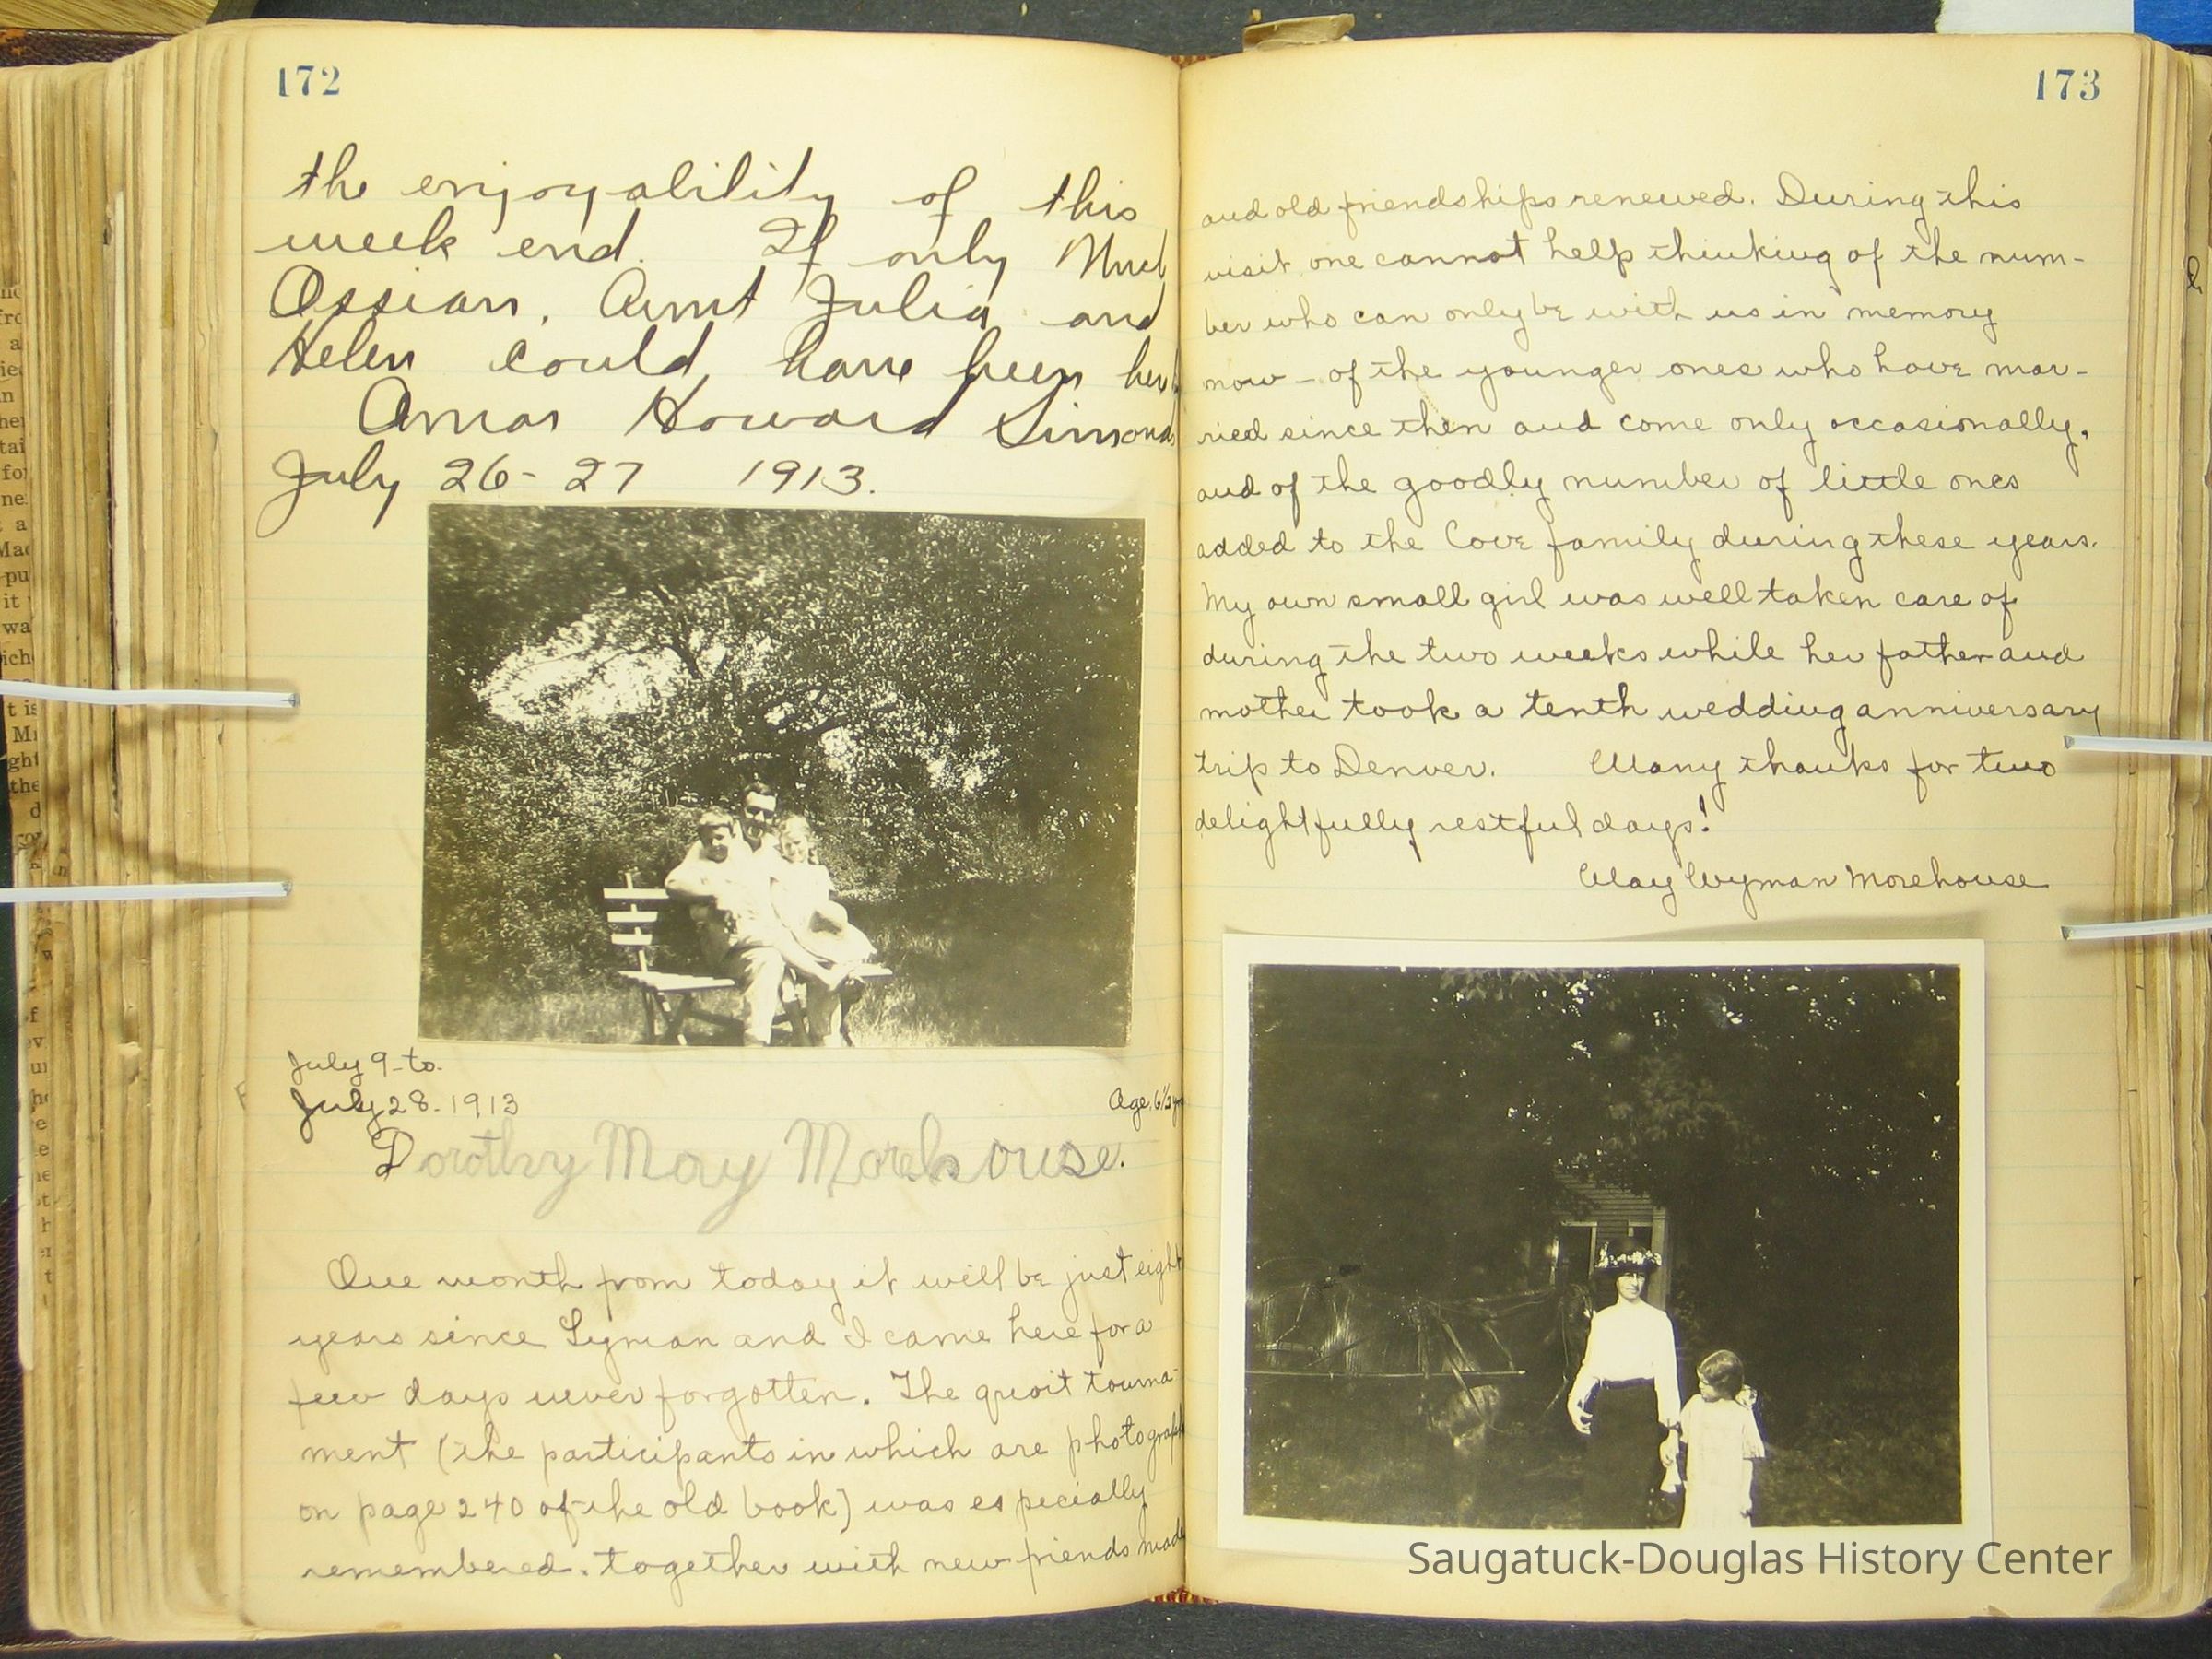 172
the enjoyability of this
week end. If only
Ossian, Aunt Julia and
Helen could have been
Amos Howard Simonds
July 26-27 1913.
July 9-to.
July 28-1913
Age, 6½
Dorothy May Morehouse.
One month from today it will be just eight
years since Lyman and I came here for a
few days never forgotten. The quoit tourna-
ment (the participants in which are
on page 240 of the old book) was especially
remembered, together with new friends made
173
and old friendships renewed. During this
visit one cannot help thinking of the num-
ber who can only be with us in memory
now - of the younger ones who have mar-
ried since then and come only occasionally,
and of the goodly number of little ones
added to the Cove family during these years.
My own small girl was well taken care of
during the two weeks while her father and
mother took a tenth wedding anniversary
trip to Denver. Many thanks for two
delightfully restful days!
May Wyman Morehouse
Saugatuck-Douglas History Center